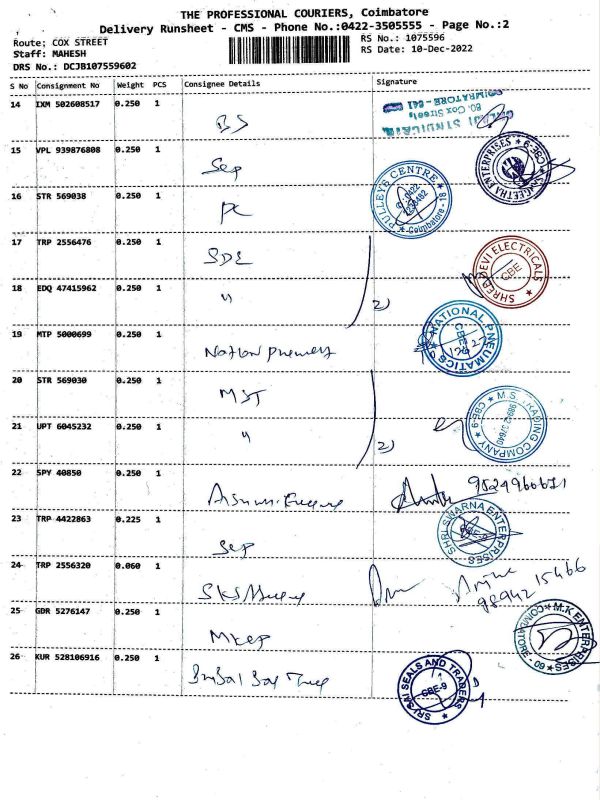 THE PROFESSIONAL COURIERS, Coimbatore
Delivery Runsheet - CMS - Phone No.:0422-3505555 - Page No.:2
Route: COX STREET
RS No.: 1075596
Staff: MAHESH
RS Date: 10-Dec-2022
DRS No.: DCJB107559602
S No Consignment No Weight PCS Consignee Details Signature
14 IXM 502608517 0.250 1 BS
60, Cox Street,
COIMBATORE - 641
15 VPL 939876808 0.250 1 Sep
SANGEETRA ENTERPRISES ★ CBE-9 ★
16 STR 569038 0.250 1 PC
PULLEYS CENTRE ★ Coimbatore - 18 ★
17 TRP 2556476 0.250 1 SDE
SHREE DEVI ELECTRICALS ★
CBE
18 EDQ 47415962 0.250 1 " 2)
19 MTP 5000699 0.250 1
★ NATIONAL PNEUMATICS ★
CBE
20 STR 569030 0.250 1 MST
M.S. TRADING COMPANY ★ CBE-9 ★
21 UPT 6045232 0.250 1 " 2)
22 SPY 40850 0.250 1
23 TRP 4422863 0.225 1 Sep
SHRI SWARNA ENTERPRISES ★
CBE-9
24 TRP 2556320 0.060 1 SKS
98942 15466
25 GDR 5276147 0.250 1 MKEP
★ M.K ENTERPRISES ★ 60 - COIMBATORE
26 KUR 528106916 0.250 1
SRI SAI SEALS AND TRADERS ★
CBE-9